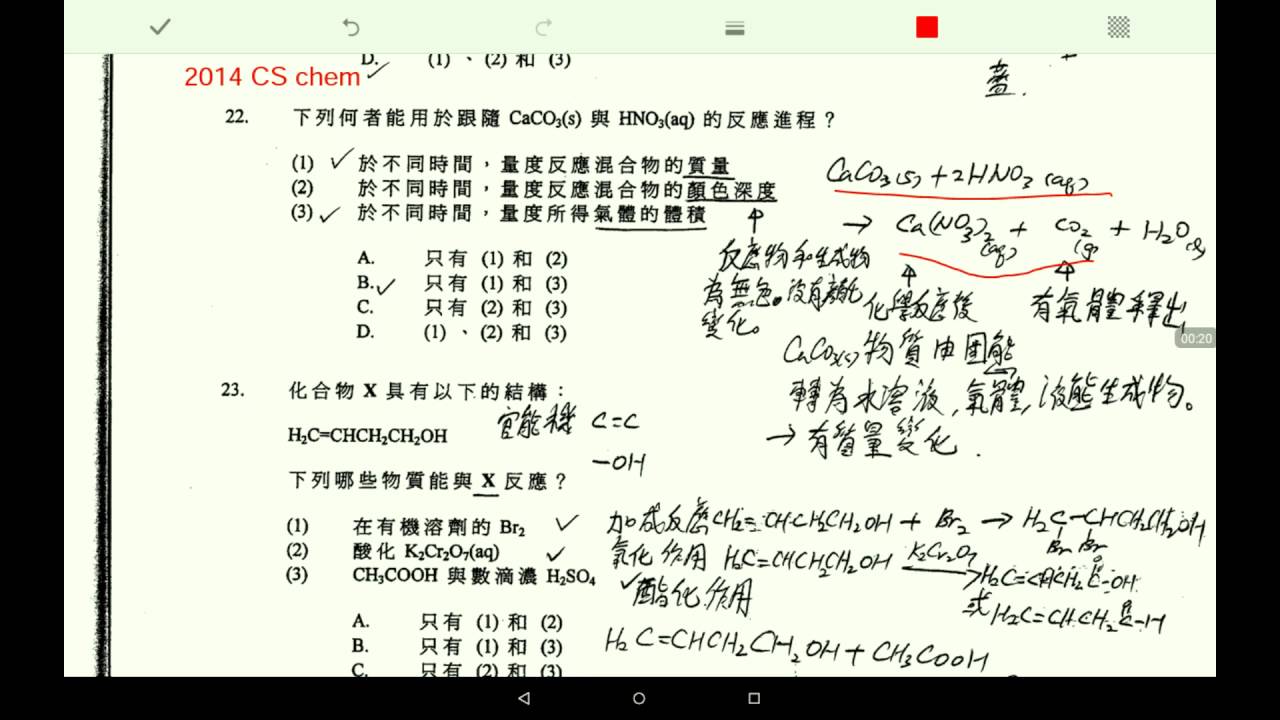 D. (1)、(2) 和 (3)
2014 CS chem
蓋.
22. 下列何者能用於跟隨 CaCO₃(s) 與 HNO₃(aq) 的反應進程？
(1) 於不同時間，量度反應混合物的質量
(2) 於不同時間，量度反應混合物的顏色深度
(3) 於不同時間，量度所得氣體的體積
A. 只有 (1) 和 (2)
B. 只有 (1) 和 (3)
C. 只有 (2) 和 (3)
D. (1)、(2) 和 (3)
CaCO₃(s) + 2HNO₃(aq)
→ Ca(NO₃)₂(aq) + CO₂(g) + H₂O(l)
反應物和生成物
為無色。沒有顏色
變化。
化學反應後
有氣體釋出
CaCO₃(s) 物質由固態
轉為水溶液，氣體，液態生成物。
→ 有質量變化.
00:20
23. 化合物 X 具有以下的結構：
H₂C=CHCH₂CH₂OH
官能機 C=C
-OH
下列哪些物質能與 X 反應？
(1) 在有機溶劑的 Br₂
(2) 酸化 K₂Cr₂O₇(aq)
(3) CH₃COOH 與數滴濃 H₂SO₄
加成反應 CH₂=CH·CH₂CH₂OH + Br₂ → H₂C-CHCH₂CH₂OH
Br Br
氧化作用 H₂C=CHCH₂CH₂OH K₂Cr₂O₇ → H₂C=CHCH₂C-OH
O
或 H₂C=CHCH₂C-H
O
酯化作用
H₂C=CHCH₂CH₂OH + CH₃COOH
A. 只有 (1) 和 (2)
B. 只有 (1) 和 (3)
C. 只有 (2) 和 (3)